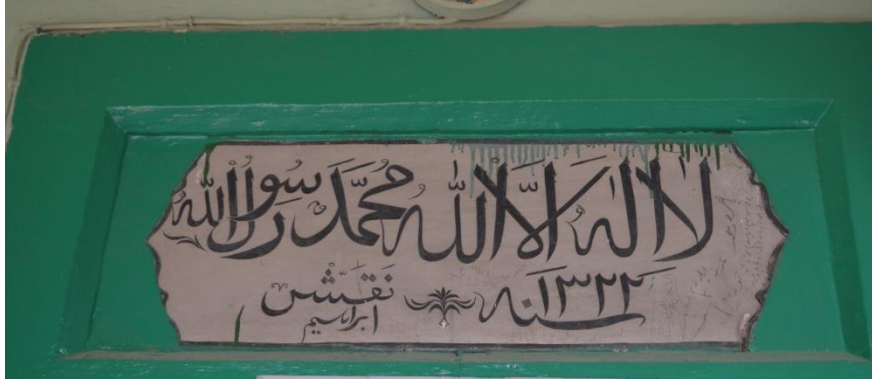 لا اله الا الله محمد رسول الله
سنه ١٣٢٢
نقش
ابراهيم